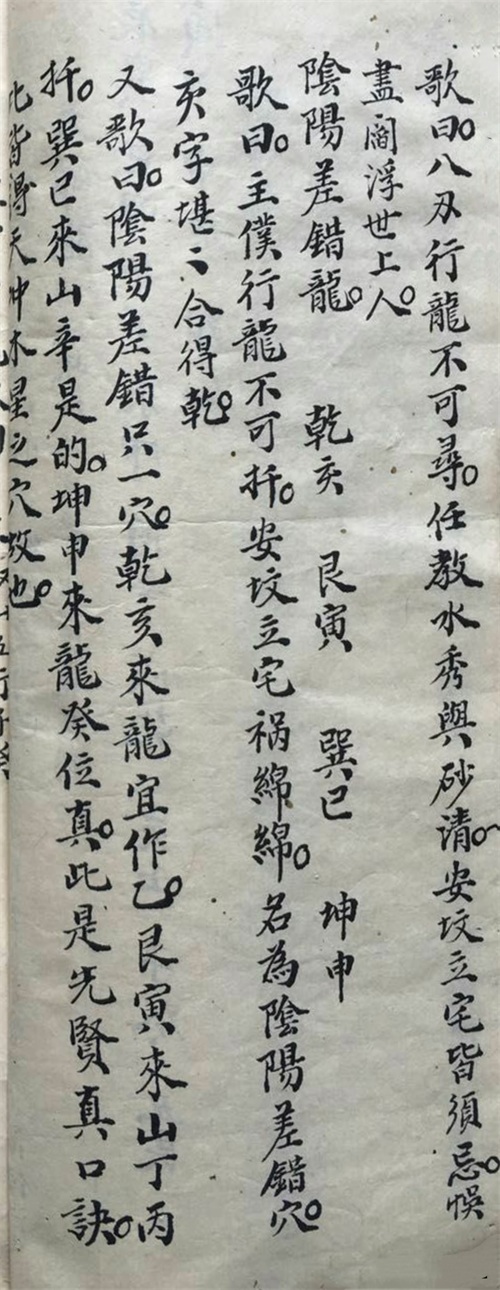 歌曰。八刃行龍不可尋。任教水秀與砂清。安坟立宅皆須忌。悞
盡閻浮世上人。
陰陽差錯龍。 乾亥 艮寅 巽巳 坤申
歌曰。主僕行龍不可扦。安坟立宅祸綿綿。名為陰陽差錯穴。
亥字堪〻合得乾。
又歌曰。陰陽差錯只一穴。乾亥來龍宜作乙。艮寅來山丁丙
扦。巽巳來山辛是的。坤申來龍癸位真。此是先賢真口訣。
此皆得天冲木星之穴故也。
五行